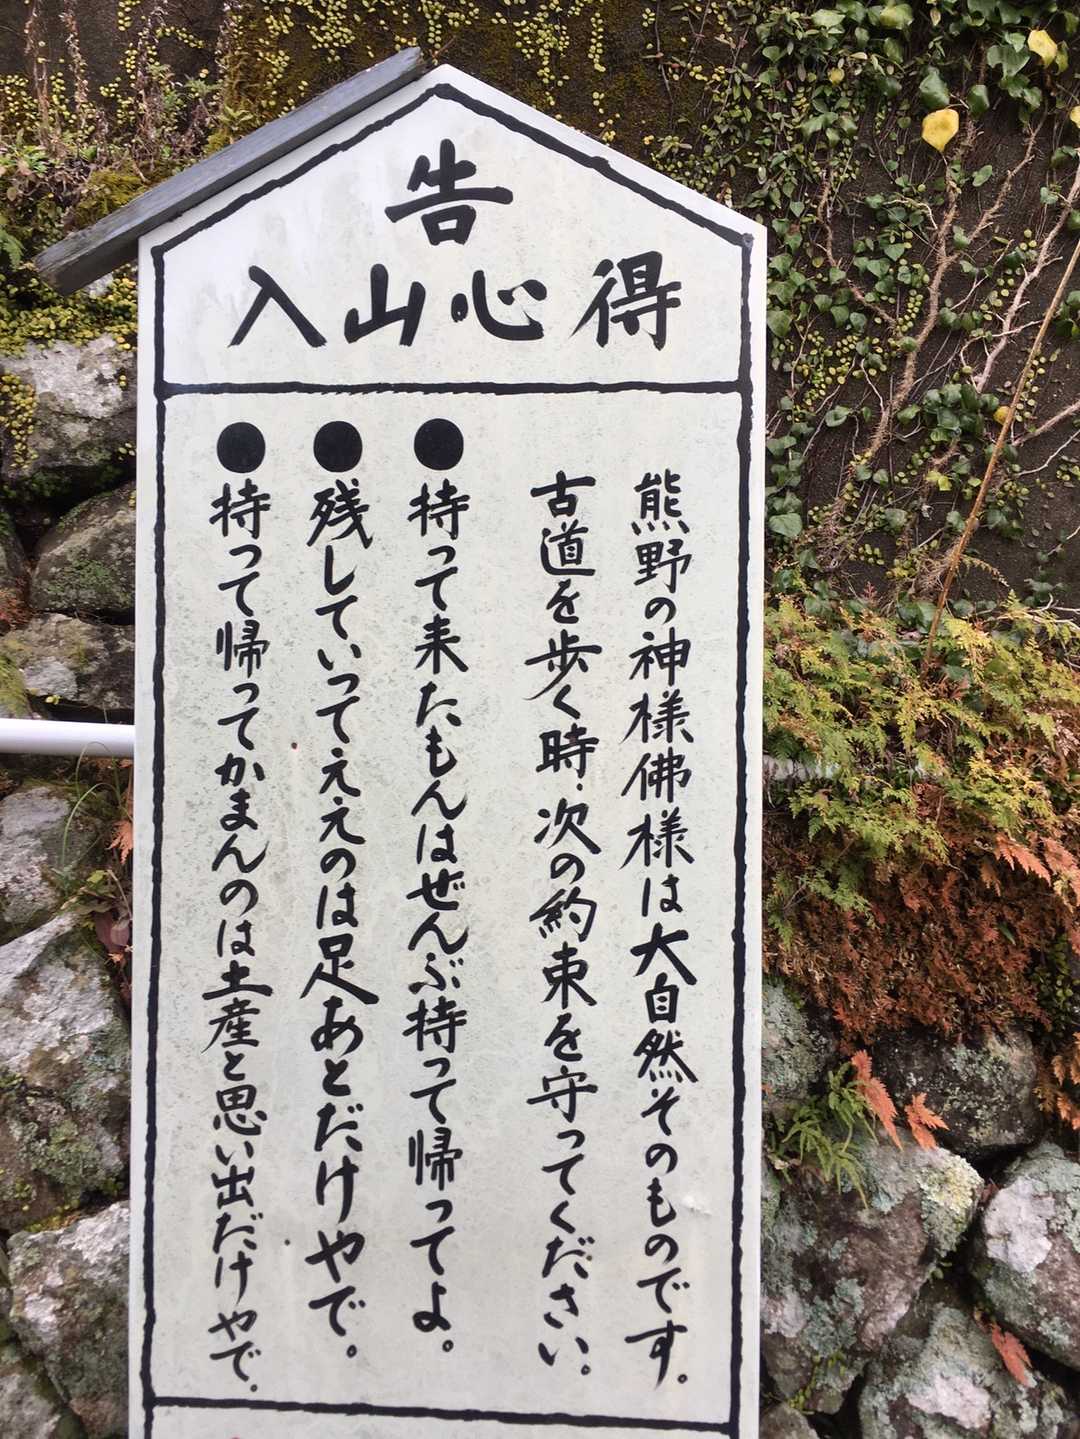 告
入山心得
熊野の神様佛様は大自然そのものです。
古道を歩く時、次の約束を守ってください。
●持って来たもんはぜんぶ持って帰ってよ。
●残していってええのは足あとだけやで。
●持って帰ってかまんのは土産と思い出だけやで。